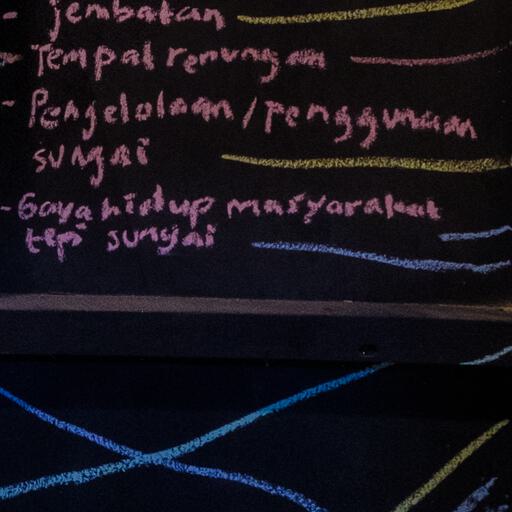 - jembatan
- Tempat renungan
- Pengelolaan/penggunaan
sungai
- Gaya hidup masyarakat
tep sungai